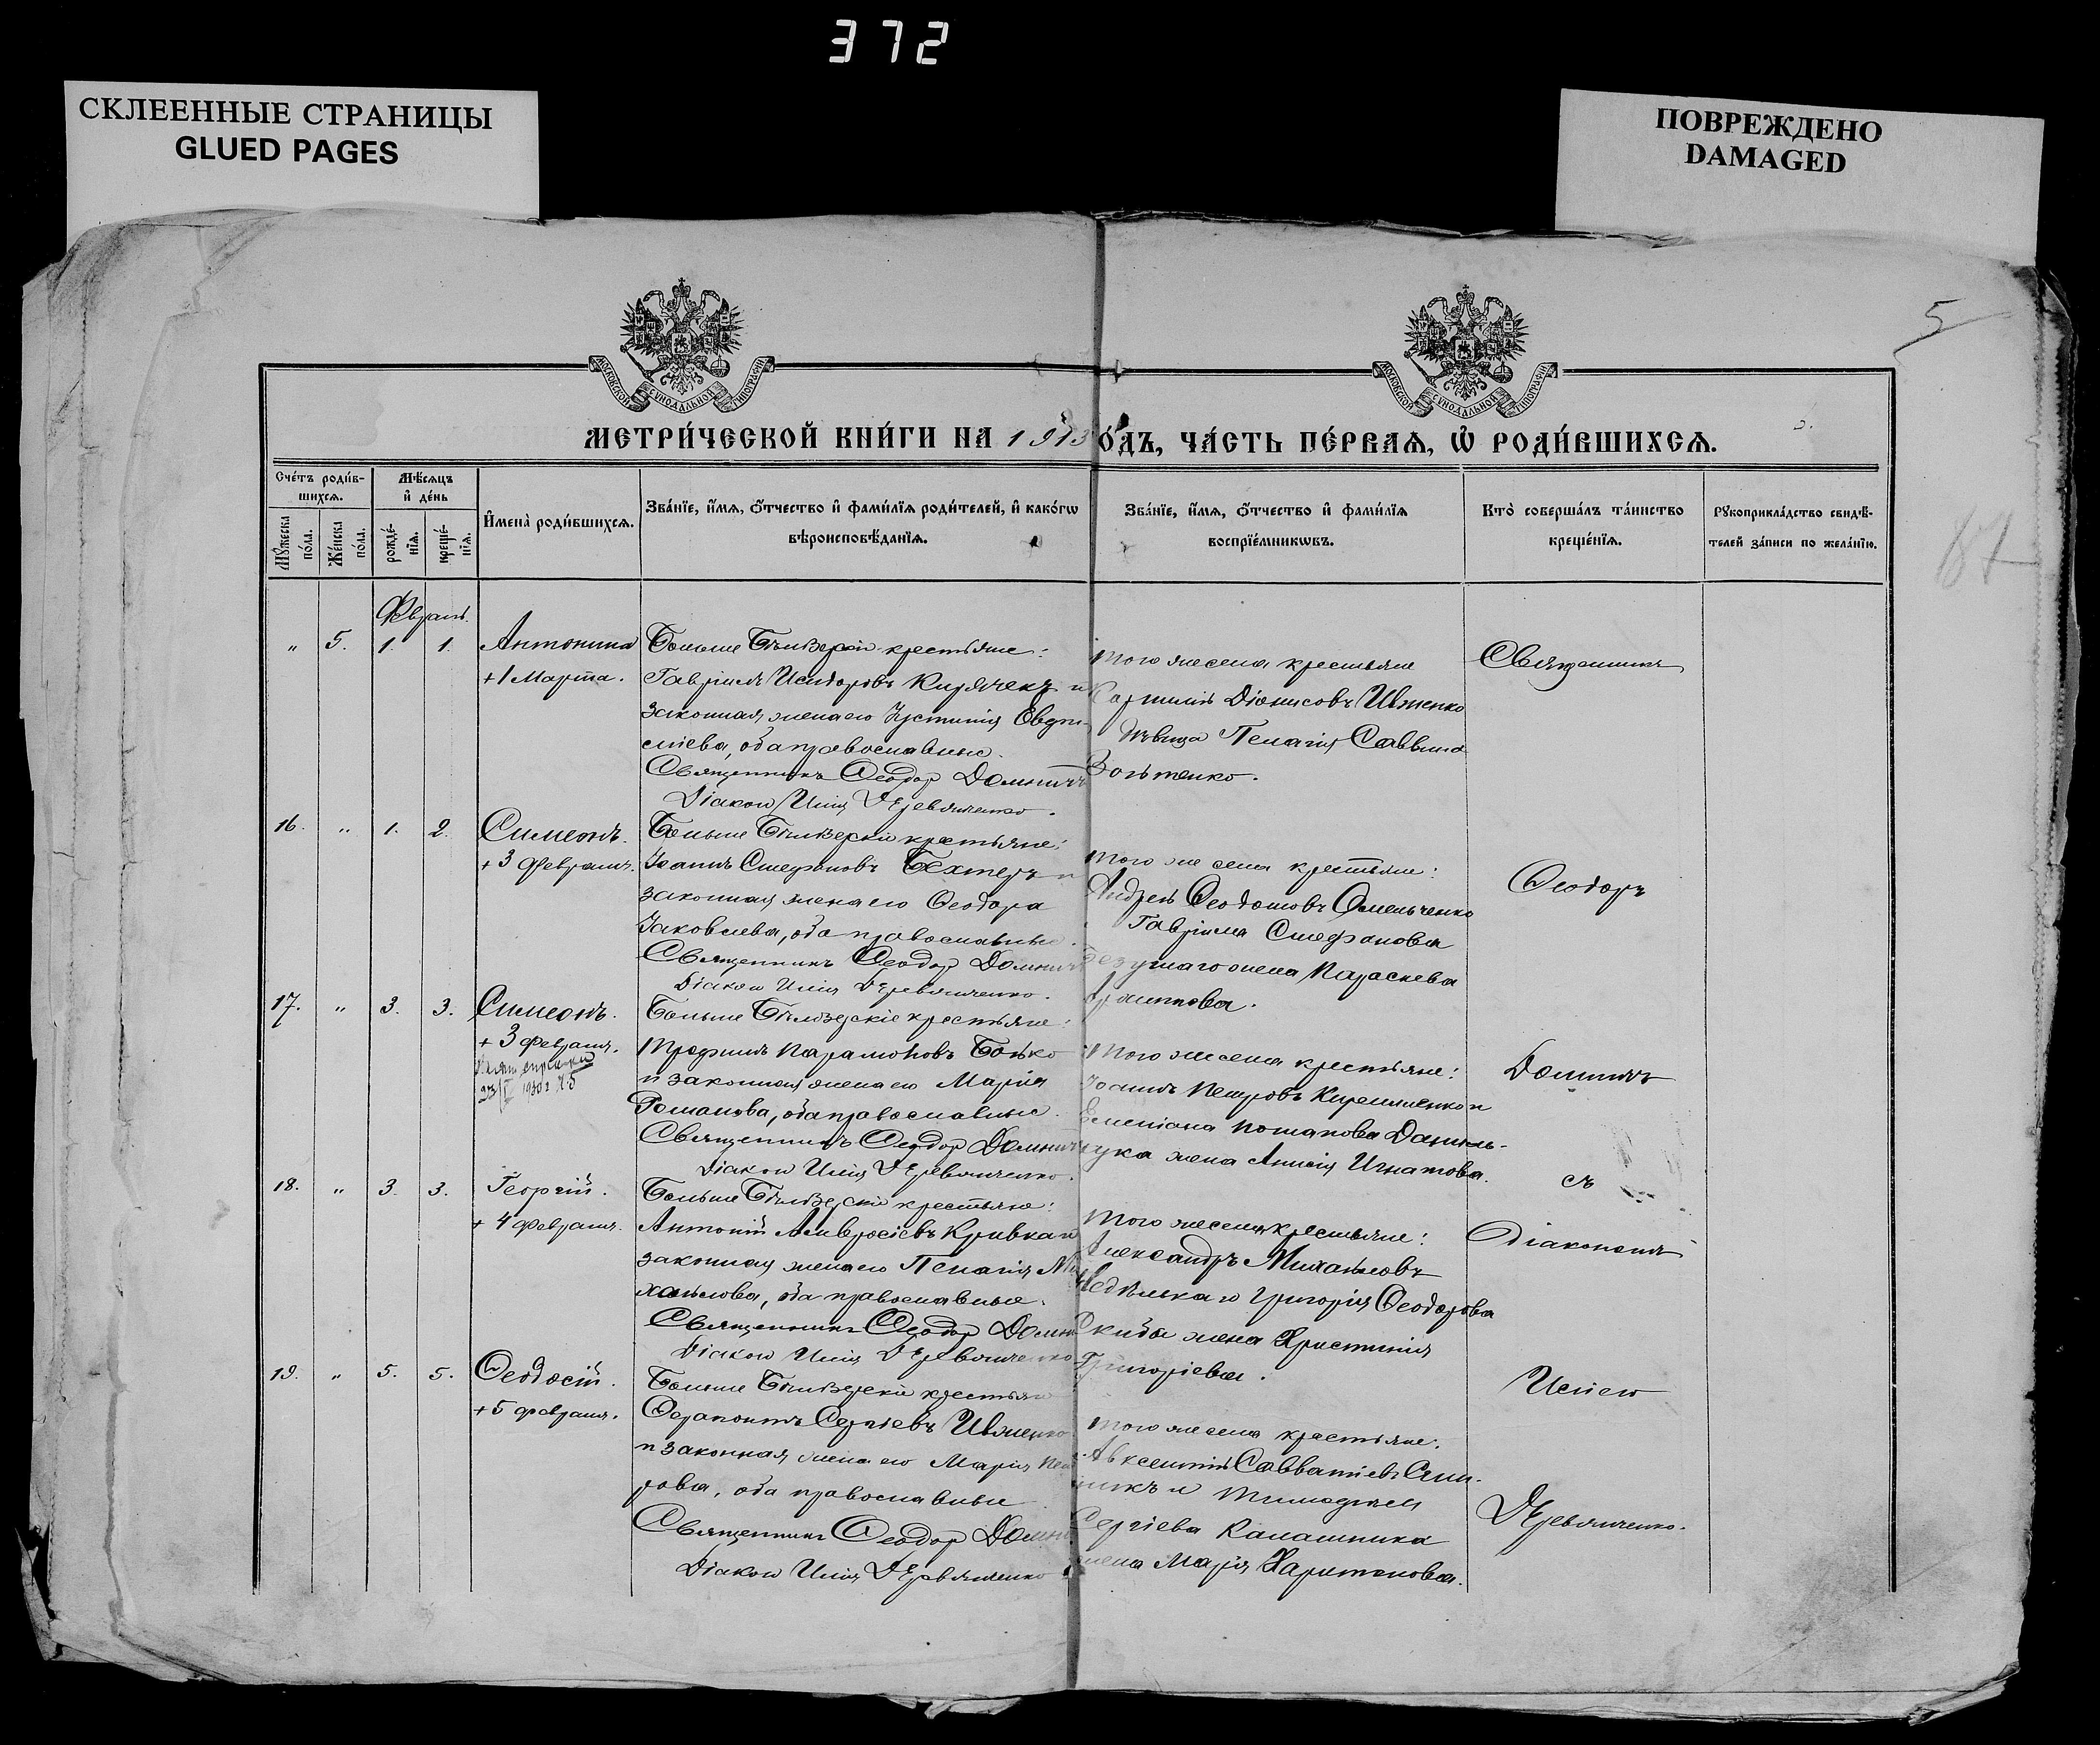 372
СКЛЕЕННЫЕ СТРАНИЦЫ
GLUED PAGES
ПОВРЕЖДЕНО
DAMAGED
5
МОСКОВСКОЙ СѴНОДАЛЬНОЙ ТИПОГРАФІИ
МОСКОВСКОЙ СѴНОДАЛЬНОЙ ТИПОГРАФІИ
МЕТРИ́ЧЕСКОЙ КНИ́ГИ НА 1913 ГО́ДЪ, ЧА́СТЬ ПЕ́РВАѦ, Ѡ҆ РОДИ́ВШИХСѦ.
Сче́тъ роди́в-
шихсѧ.
Мꙋ́жеска по́ла.
Же́нска по́ла.
Мѣ́сѧцъ
и҆ де́нь
рожде́-
нїѧ.
креще́-
нїѧ.
И҆мена̀ роди́вшихсѧ.
Зва́нїе, и҆́мѧ, ѻ҆́тчество и҆ фами́лїѧ роди́телей, и҆ како́гѡ
вѣроисповѣ́данїѧ.
Зва́нїе, и҆́мѧ, ѻ҆́тчество и҆ фами́лїѧ
воспрїе́мникѡвъ.
Кто̀ соверша́лъ та́инство
креще́нїѧ.
Рꙋкоприкла́дство свидѣ́-
телей за́писи по жела́нїю.
Февраль
" 5. 1. 1. Антонина
+1 Марта.
Больше Бѣлзерскіе крестьяне:
Гавріилъ Исидоровъ и
законная жена его Іустинія Евдо-
кіева, оба православные.
Священникъ Ѳеодор Домничъ
Діакон Илія Деревянченко.
того же села крестьяне
Діонисовъ Ивженко
дѣвица Пелагія Саввина
Священникъ
16. " 1. 2. Симеонъ.
+ 3 февраля.
Больше Бѣлзерскіе крестьяне:
Іоаннъ Стефановъ Бехтеръ и
законная жена его Ѳеодора
Іаковлева, оба православные.
Священникъ Ѳеодор Домничъ
Діакон Илія Деревянченко.
того же села крестьяне:
Андрей Ѳеодотовъ Омельченко
Гавріила Стефанова
жена Параскева
Ѳеодоръ
17. " 3. 3. Симеонъ.
+ 3 февраля.
Больше Бѣлозерскіе крестьяне:
Трофимъ Парамоновъ Бойко
и законная жена его Марія
Романова, оба православные.
Священникъ Ѳеодор Домничъ
Діакон Илія Деревянченко.
того же села крестьяне:
Іоаннъ Петровъ и
Емеліана Потапова Даниль-
чука жена Анисія Игнатова.
Домничъ
съ
18. " 3. 3. Георгій.
+ 4 февраля.
Больше Бѣлзерскіе крестьяне:
Антоній Амвросіевъ Кривка и
законная жена его Пелагія Ми-
хаилова, оба православные.
Священникъ Ѳеодор Домничъ
Діакон Илія Деревянченко
того же села крестьяне:
Александръ Михаиловъ
Григорія Ѳеодорова
Скиба жена Христинія
Григоріева.
Діакономъ
19. " 5. 5. Ѳеодосій.
+ 5 февраля.
Больше Бѣлзерскіе крестьяне
Ѳерапонтъ Сергіевъ Ивженко
и законная жена его Марія Пет-
рова, оба православные
Священникъ Ѳеодор Домничъ
Діакон Илія Деревянченко
того же села крестьяне:
Авксентій Савватіевъ
и Тимоѳея
Сергіева Калашника
жена Марія Харитонова.
Иліею
Деревянченко.